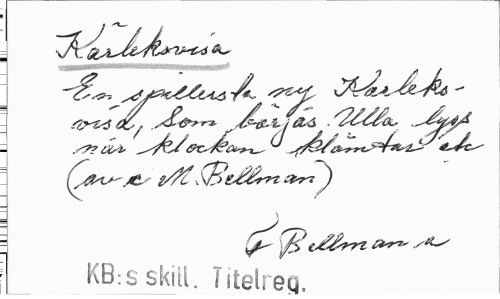 Kärleksvisa
En spillersta ny Kärleks-
visa, Som börjas Ulla lyss
när klockan klämtar etc
(av C M. Bellman)
F Bellman a
KB:s skill. Titelreg.